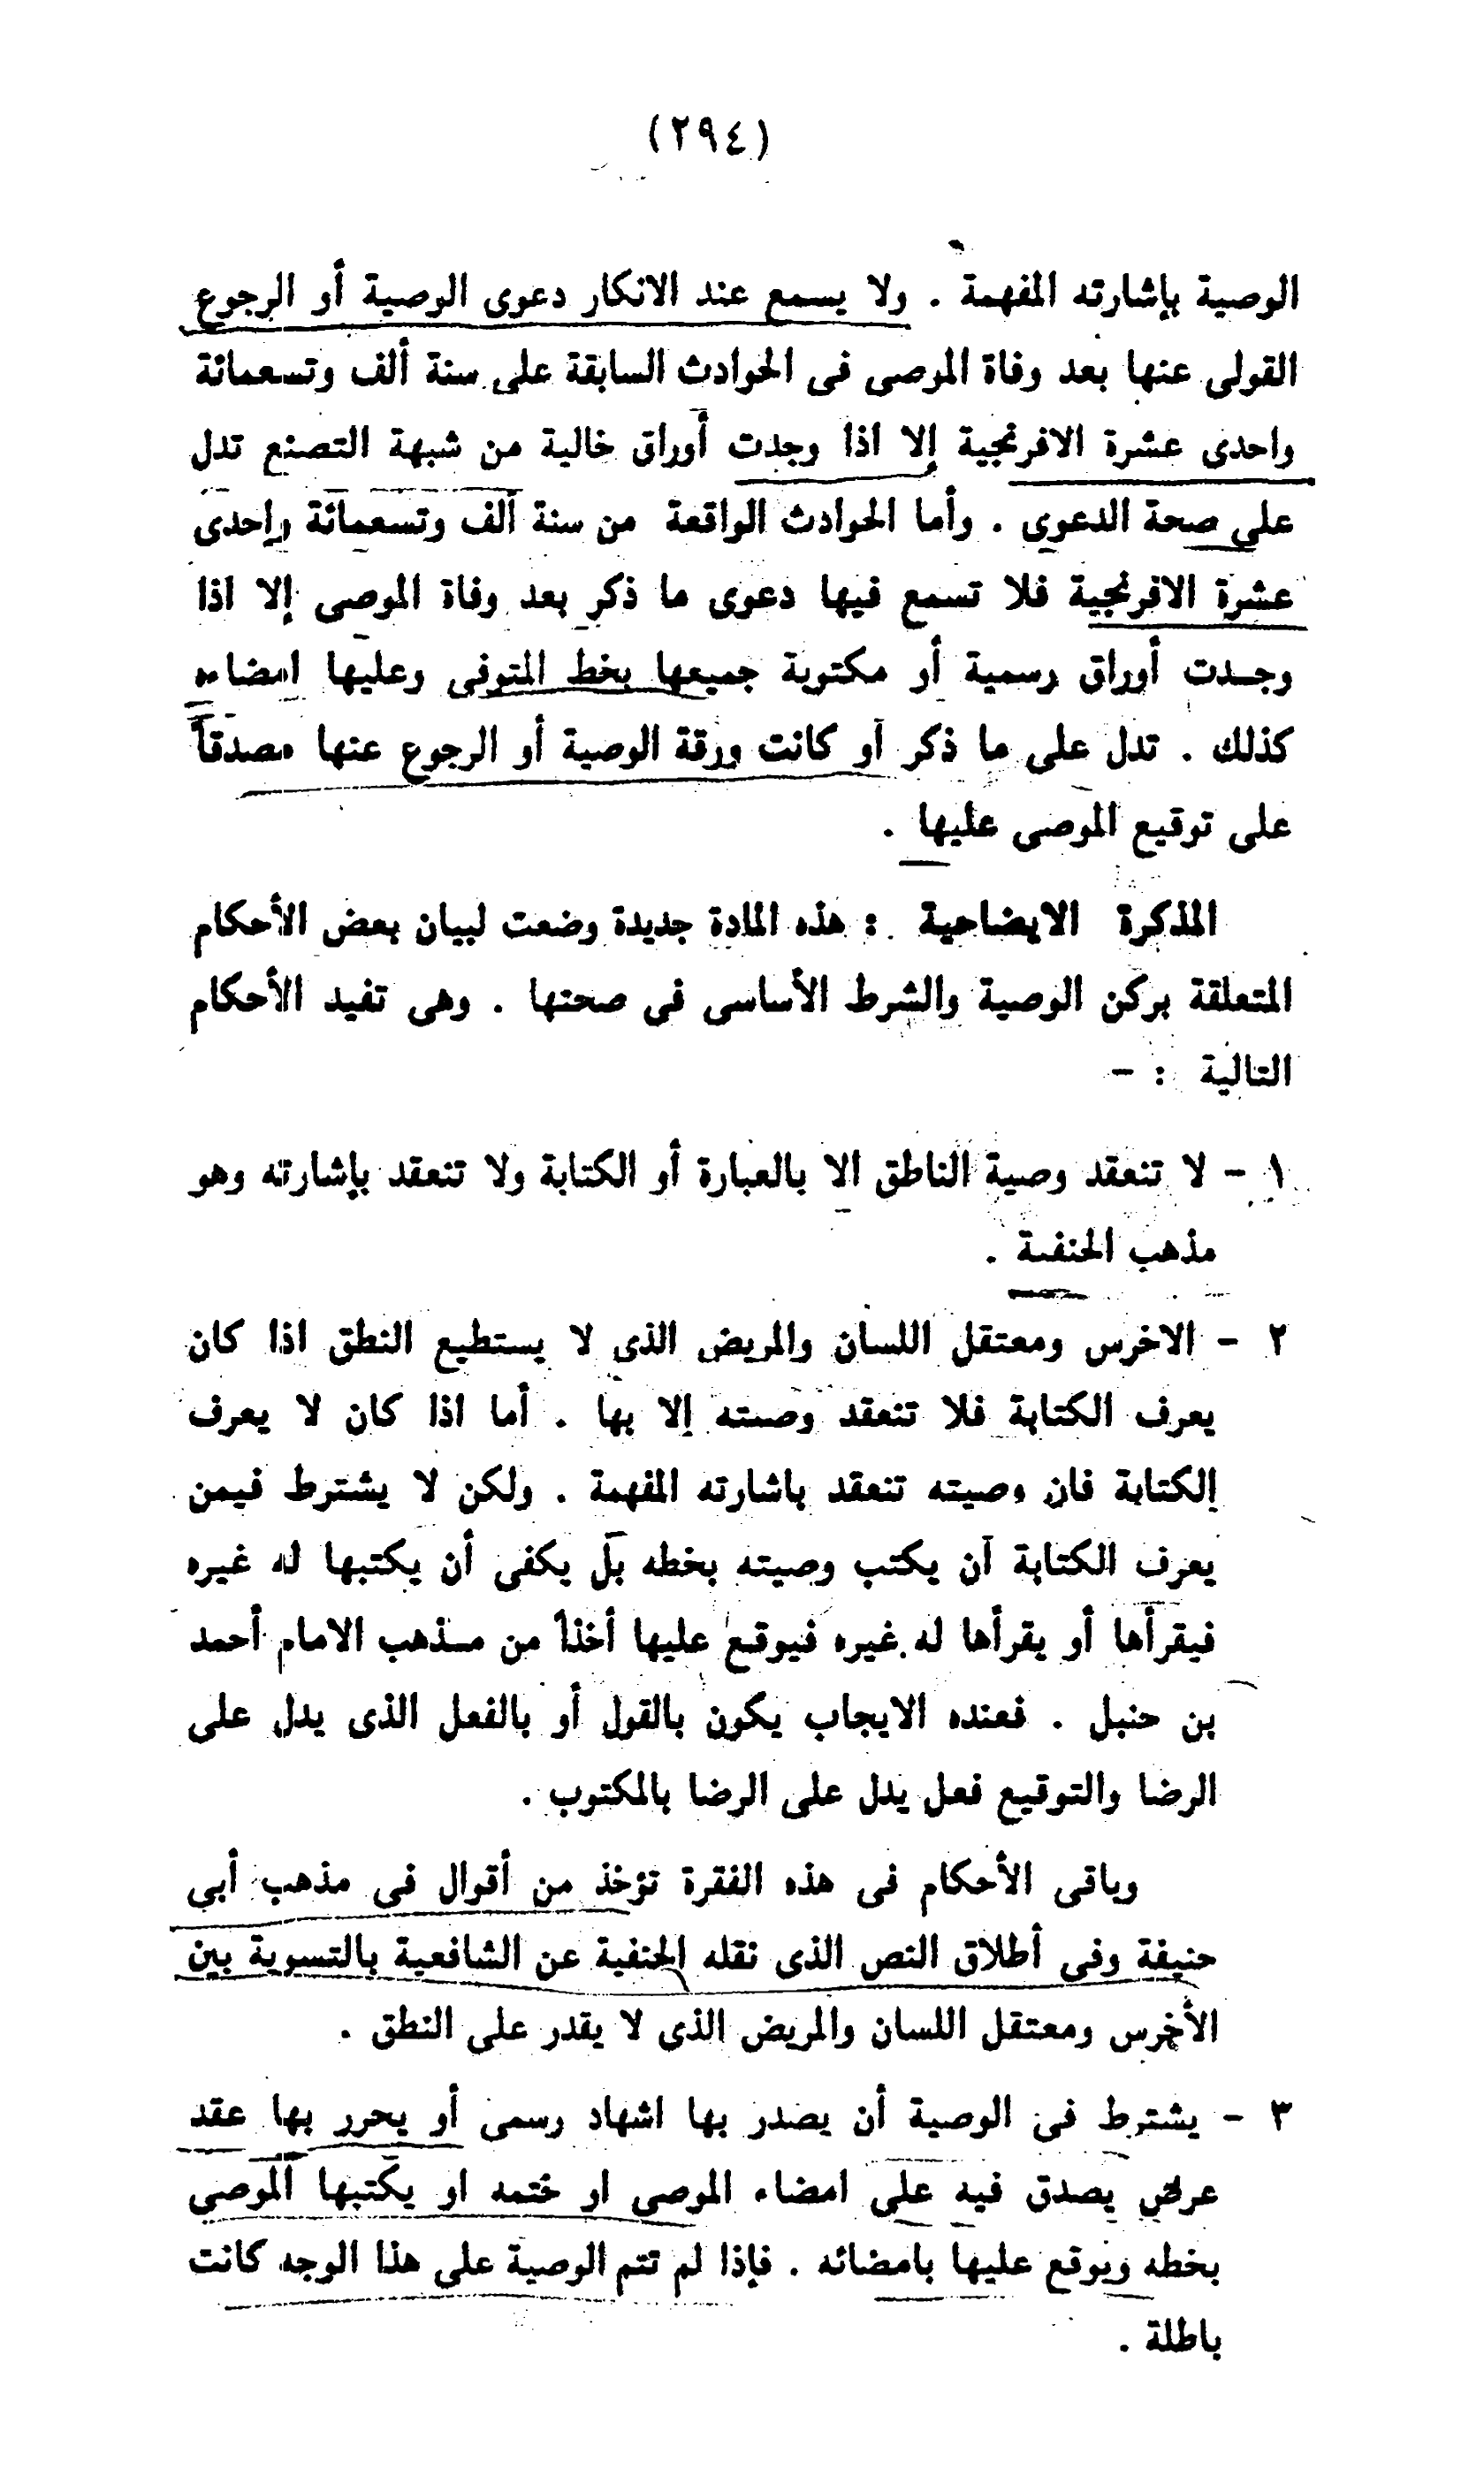 (٢٩٤)
الوصية بإشارته المفهمة . ولا يسمع عند الانكار دعوى الوصية أو الرجوع
القولى عنها بعد وفاة الموصى فى الحوادث السابقة على سنة ألف وتسعمائة
واحدى عشرة الافرنجية إلا اذا وجدت أوراق خالية من شبهة التصنع تدل
على صحة الدعوى . وأما الحوادث الواقعة من سنة ألف وتسعمائة واحدى
عشرة الافرنجية فلا تسمع فيها دعوى ما ذكر بعد وفاة الموصى إلا اذا
وجدت أوراق رسمية أو مكتوبة جميعها بخط المتوفى وعليها امضاءه
كذلك . تدل على ما ذكر أو كانت ورقة الوصية أو الرجوع عنها مصدقاً
على توقيع الموصى عليها .
المذكرة الايضاحية : هذه المادة جديدة وضعت لبيان بعض الأحكام
المتعلقة بركن الوصية والشرط الأساسى فى صحتها . وهى تفيد الأحكام
التالية : –
١ – لا تنعقد وصية الناطق الا بالعبارة أو الكتابة ولا تنعقد بإشارته وهو
مذهب الحنفية .
٢ – الاخرس ومعتقل اللسان والمريض الذى لا يستطيع النطق اذا كان
يعرف الكتابة فلا تنعقد وصيته إلا بها . أما اذا كان لا يعرف
الكتابة فان وصيته تنعقد باشارته المفهمة . ولكن لا يشترط فيمن
يعرف الكتابة أن يكتب وصيته بخطه بل يكفى أن يكتبها له غيره
فيقرأها أو يقرأها له غيره فيوقع عليها أخذاً من مذهب الامام أحمد
بن حنبل . فعنده الايجاب يكون بالقول أو بالفعل الذى يدل على
الرضا والتوقيع فعل يدل على الرضا بالمكتوب .
وباقى الأحكام فى هذه الفقرة تؤخذ من أقوال فى مذهب أبى
حنيفة وفى أطلاق النص الذى نقله الحنفية عن الشافعية بالتسوية بين
الأخرس ومعتقل اللسان والمريض الذى لا يقدر على النطق .
٣ – يشترط فى الوصية أن يصدر بها اشهاد رسمى أو يحرر بها عقد
عرفى يصدق فيه على امضاء الموصى او ختمه او يكتبها الموصى
بخطه ويوقع عليها بامضائه . فإذا لم تتم الوصية على هذا الوجه كانت
باطلة .